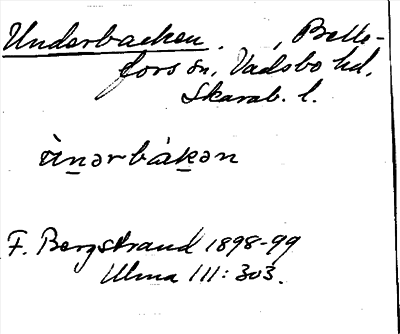 Underbacken. , Belle-
fors sn, Vadsbo hd,
Skarab. l.
ùnərbákən
F. Bergstrand 1898-99
Ulma 111: 303.